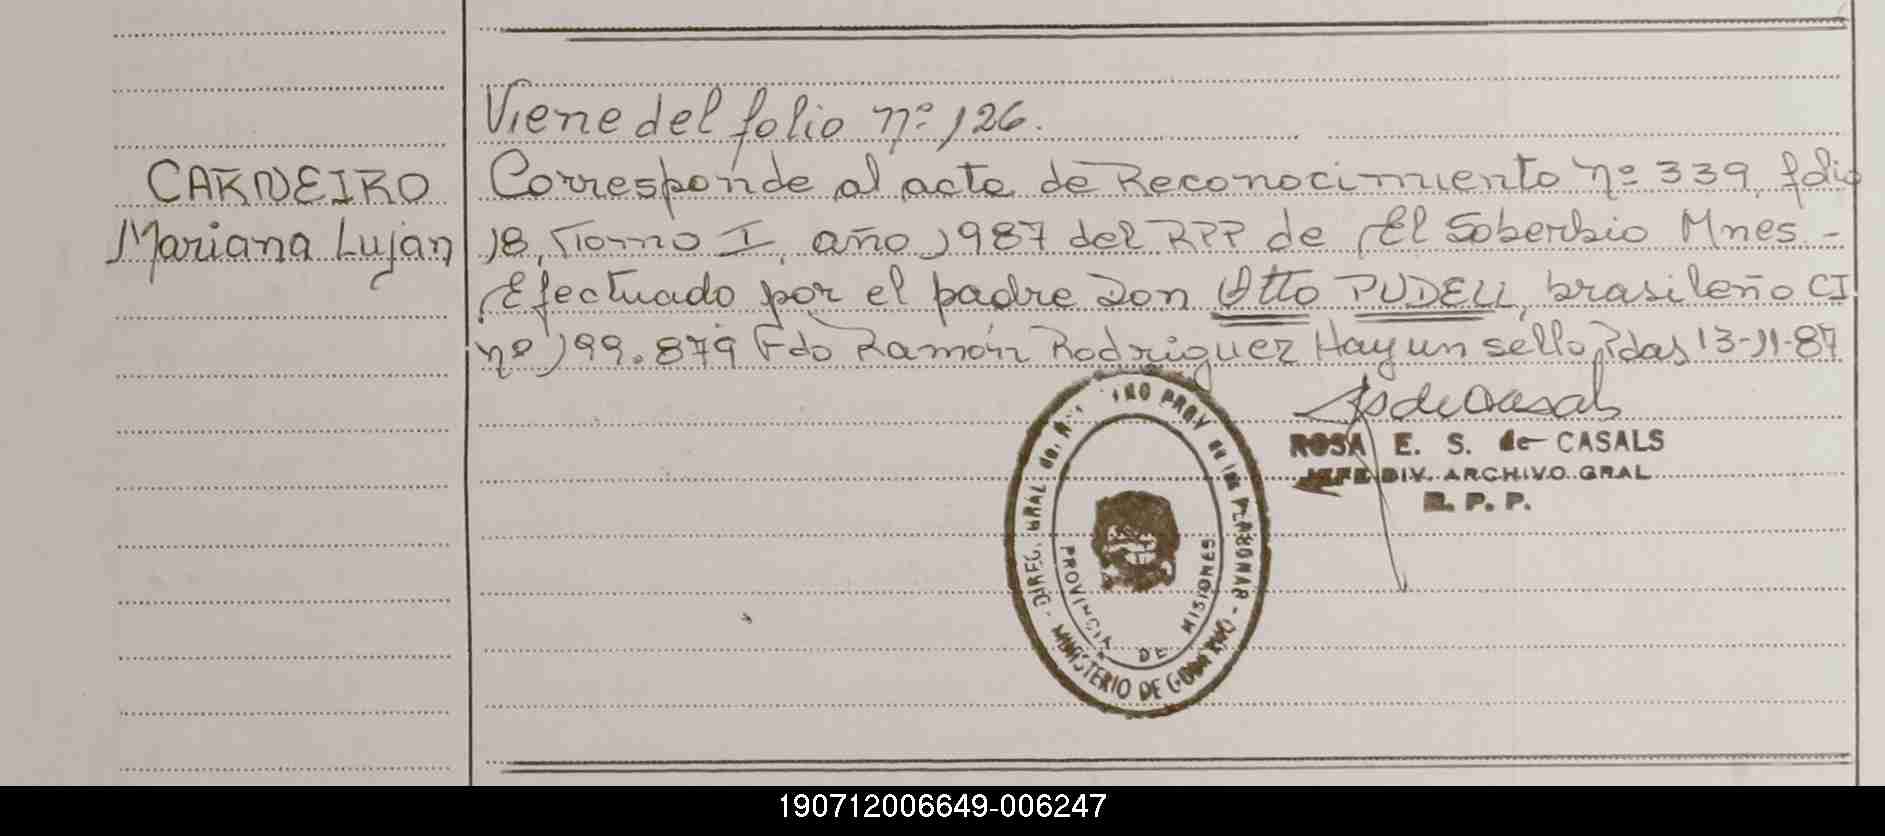 Viene del folio nº 126.
CARNEIRO
Mariana Luján
Corresponde al acta de Reconocimiento nº 339, folio
18, Tomo I, año 1987 del RPP de El Soberbio Mnes -
Efectuado por el padre Don Otto PUDELL, brasileño CI
nº 199.879 Fdo Ramón Rodriguez Hay un sello Pdas 13-11-87
ROSA E. S. de CASALS
JEFE DIV. ARCHIVO GRAL
R. P. P.
DIREC. GRAL del PROV de las PERSONAS - MINISTERIO DE GOBIERNO -
PROVINCIA DE MISIONES
190712006649-006247